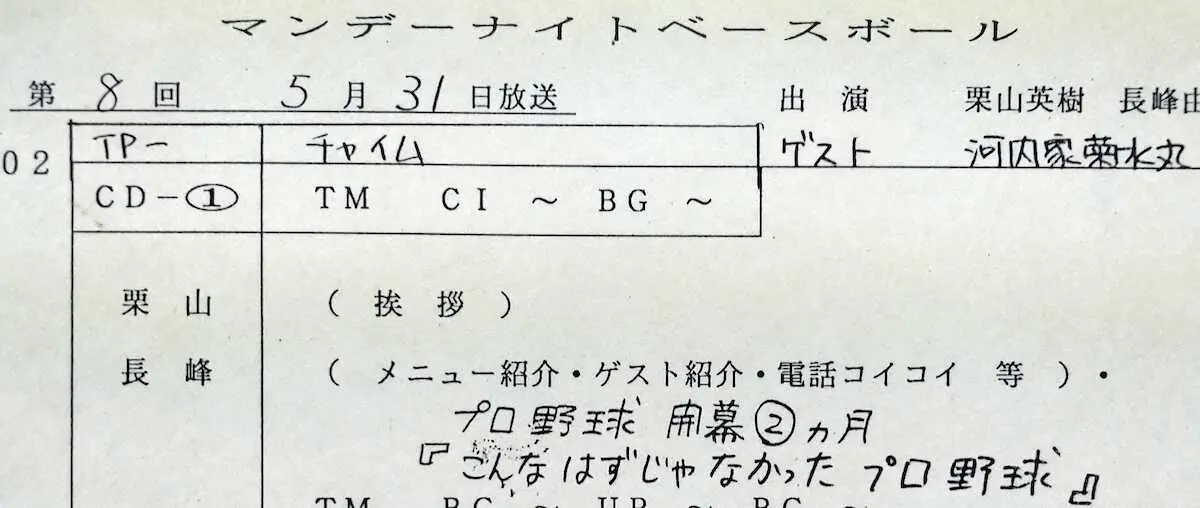 マンデーナイトベースボール
第 8 回 5 月 31 日放送
出 演 栗山英樹 長峰由
ゲスト 河内家菊水丸
02 TP- チャイム
CD-① TM CI ~ BG ~
栗 山 ( 挨 拶 )
長 峰 ( メニュー紹介・ゲスト紹介・電話コイコイ 等 )・
プロ野球 開幕②ヵ月
『こんなはずじゃなかった プロ野球』
TM BG ~ UP ~ BG ~